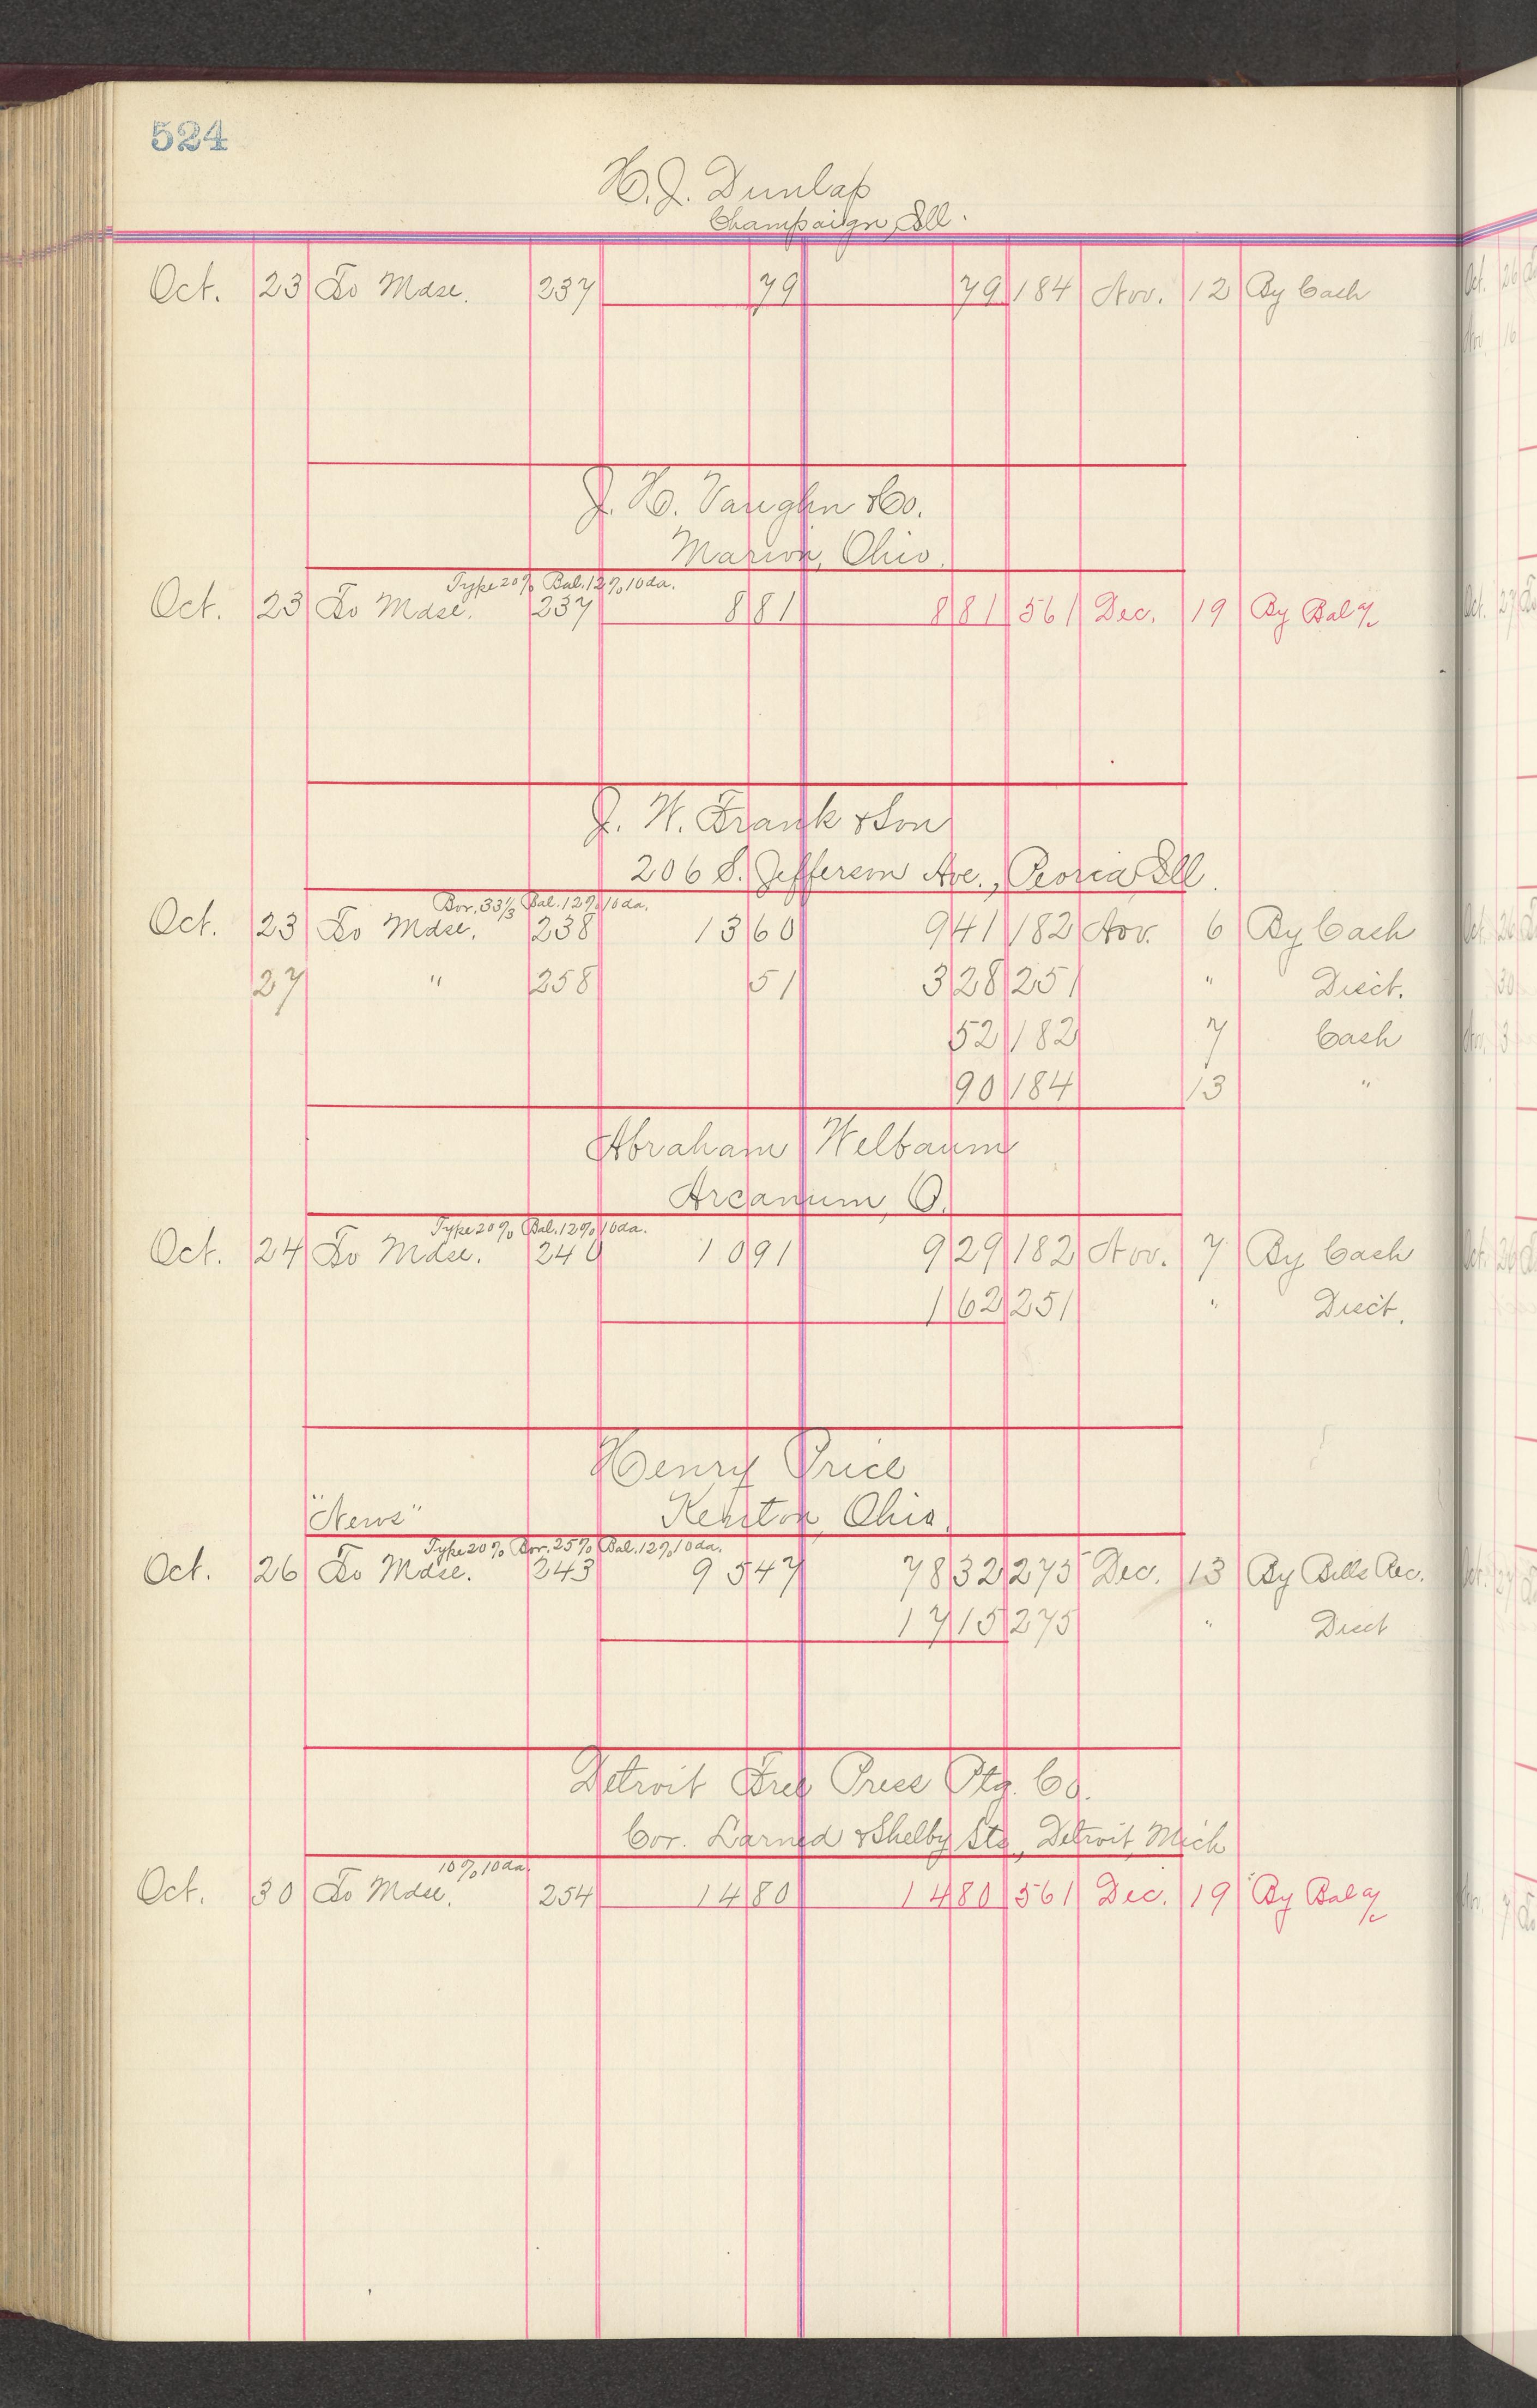 524
H. J. Dunlap
Champaign, Ill.
Oct. 23 To Mdse. 237 79 79 184 Nov. 12 By Cash
J. H. Vaughn & Co.
Marion, Ohio.
Type 20% Bal. 12% 10 da.
Oct. 23 To Mdse. 237 8 81 8 81 561 Dec. 19 By Bal a/c
J. W. Frank & Son
206 S. Jefferson Ave., Peoria Ill.
Bor. 33 1/3 Bal. 12% 10 da.
Oct. 23 To Mdse. 238 13 60 9 41 182 Nov. 6 By Cash
27 " 258 51 3 28 251 " Disct.
52 182 7 Cash
90 184 13 "
Abraham Welbaum
Arcanum, O.
Type 20% Bal. 12% 10 da.
Oct. 24 To Mdse. 240 10 91 9 29 182 Nov. 7 By Cash
1 62 251 " Disct.
Henry Price
"News" Kenton, Ohio.
Type 20% Bor. 25% Bal. 12% 10 da.
Oct. 26 To Mdse. 243 95 47 78 32 275 Dec. 13 By Bills Rec.
17 15 275 " Disct
Detroit Free Press Ptg. Co.
Cor. Larned & Shelby Sts., Detroit, Mich
10% 10 da.
Oct. 30 To Mdse. 254 14 80 14 80 561 Dec. 19 By Bal a/c